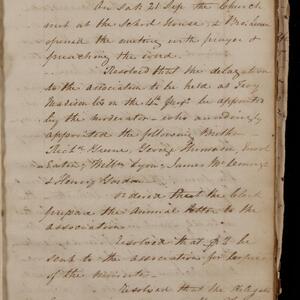 On Sat. 21 Sep. the Church
met at the School House, &
opened the meeting with prayer &
preaching the word.
Resolved that the delegation
to the association to be held at
Madison Co on the 4th be appointed
by the moderator who accordingly
appointed the following Brethren
Greene, George
Eaton, Willm Lyon, James
& Henry Gordon
ordered that the Clerk
prepare the annual letter to the
association.
Resolved that $2 be
sent to the association for copies
of the minutes.
Resolved that the